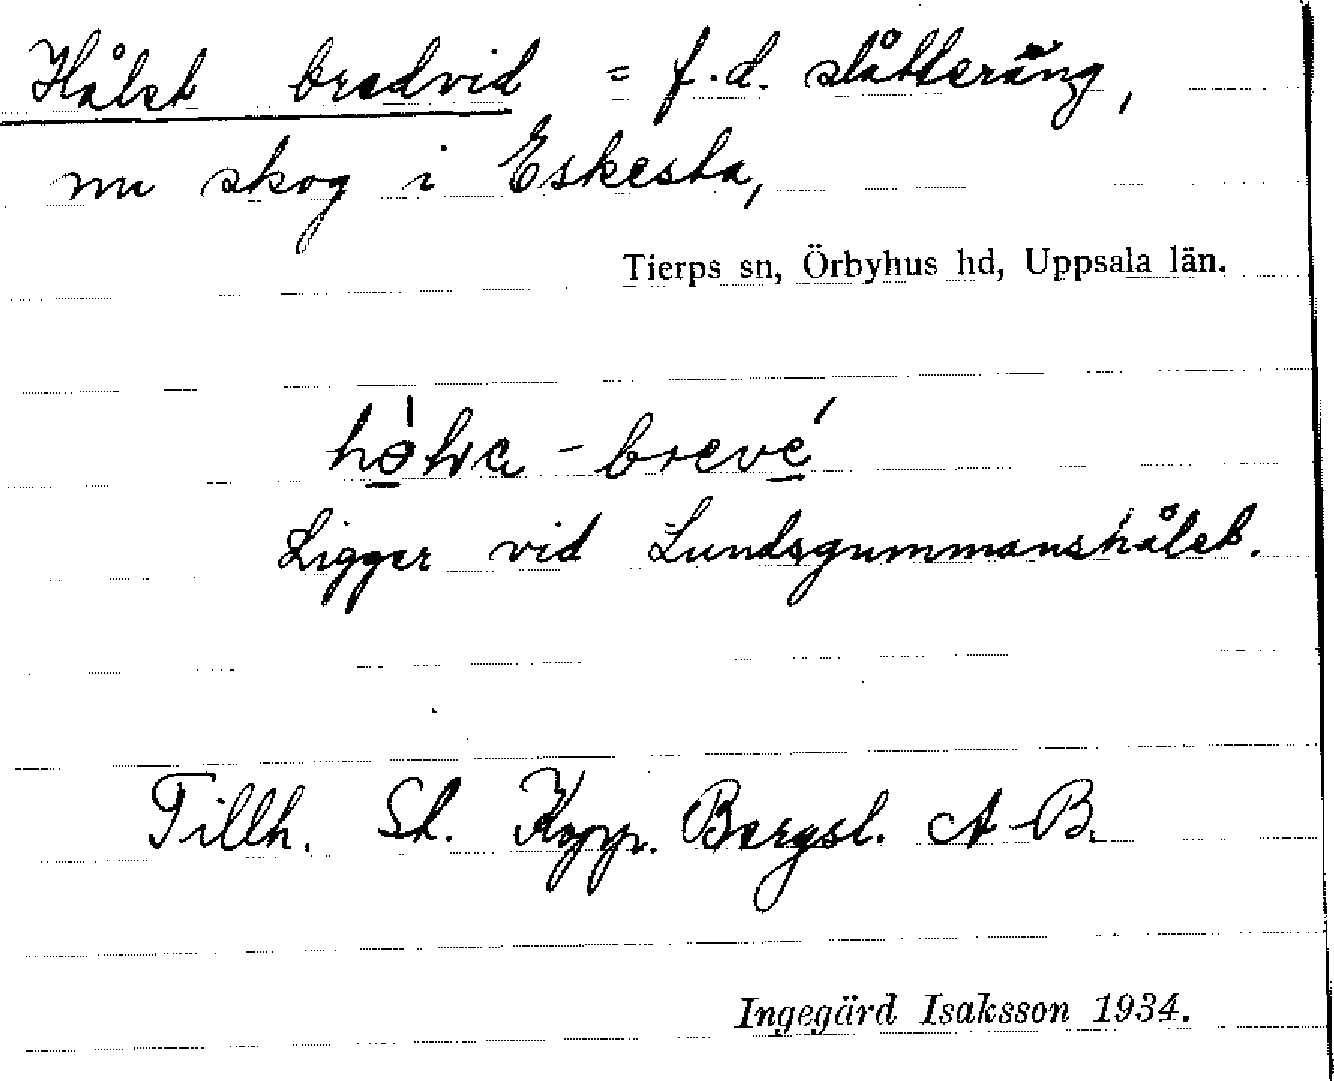 Hålet bredvid = f.d. slåtteräng,
nu skog i Eskesta,
Tierps sn, Örbyhus hd, Uppsala län.
- brevé
Ligger vid Lundsgummanshålet.
Tillh. St. Kopp. Bergsl. A-B.
Ingegärd Isaksson 1934.